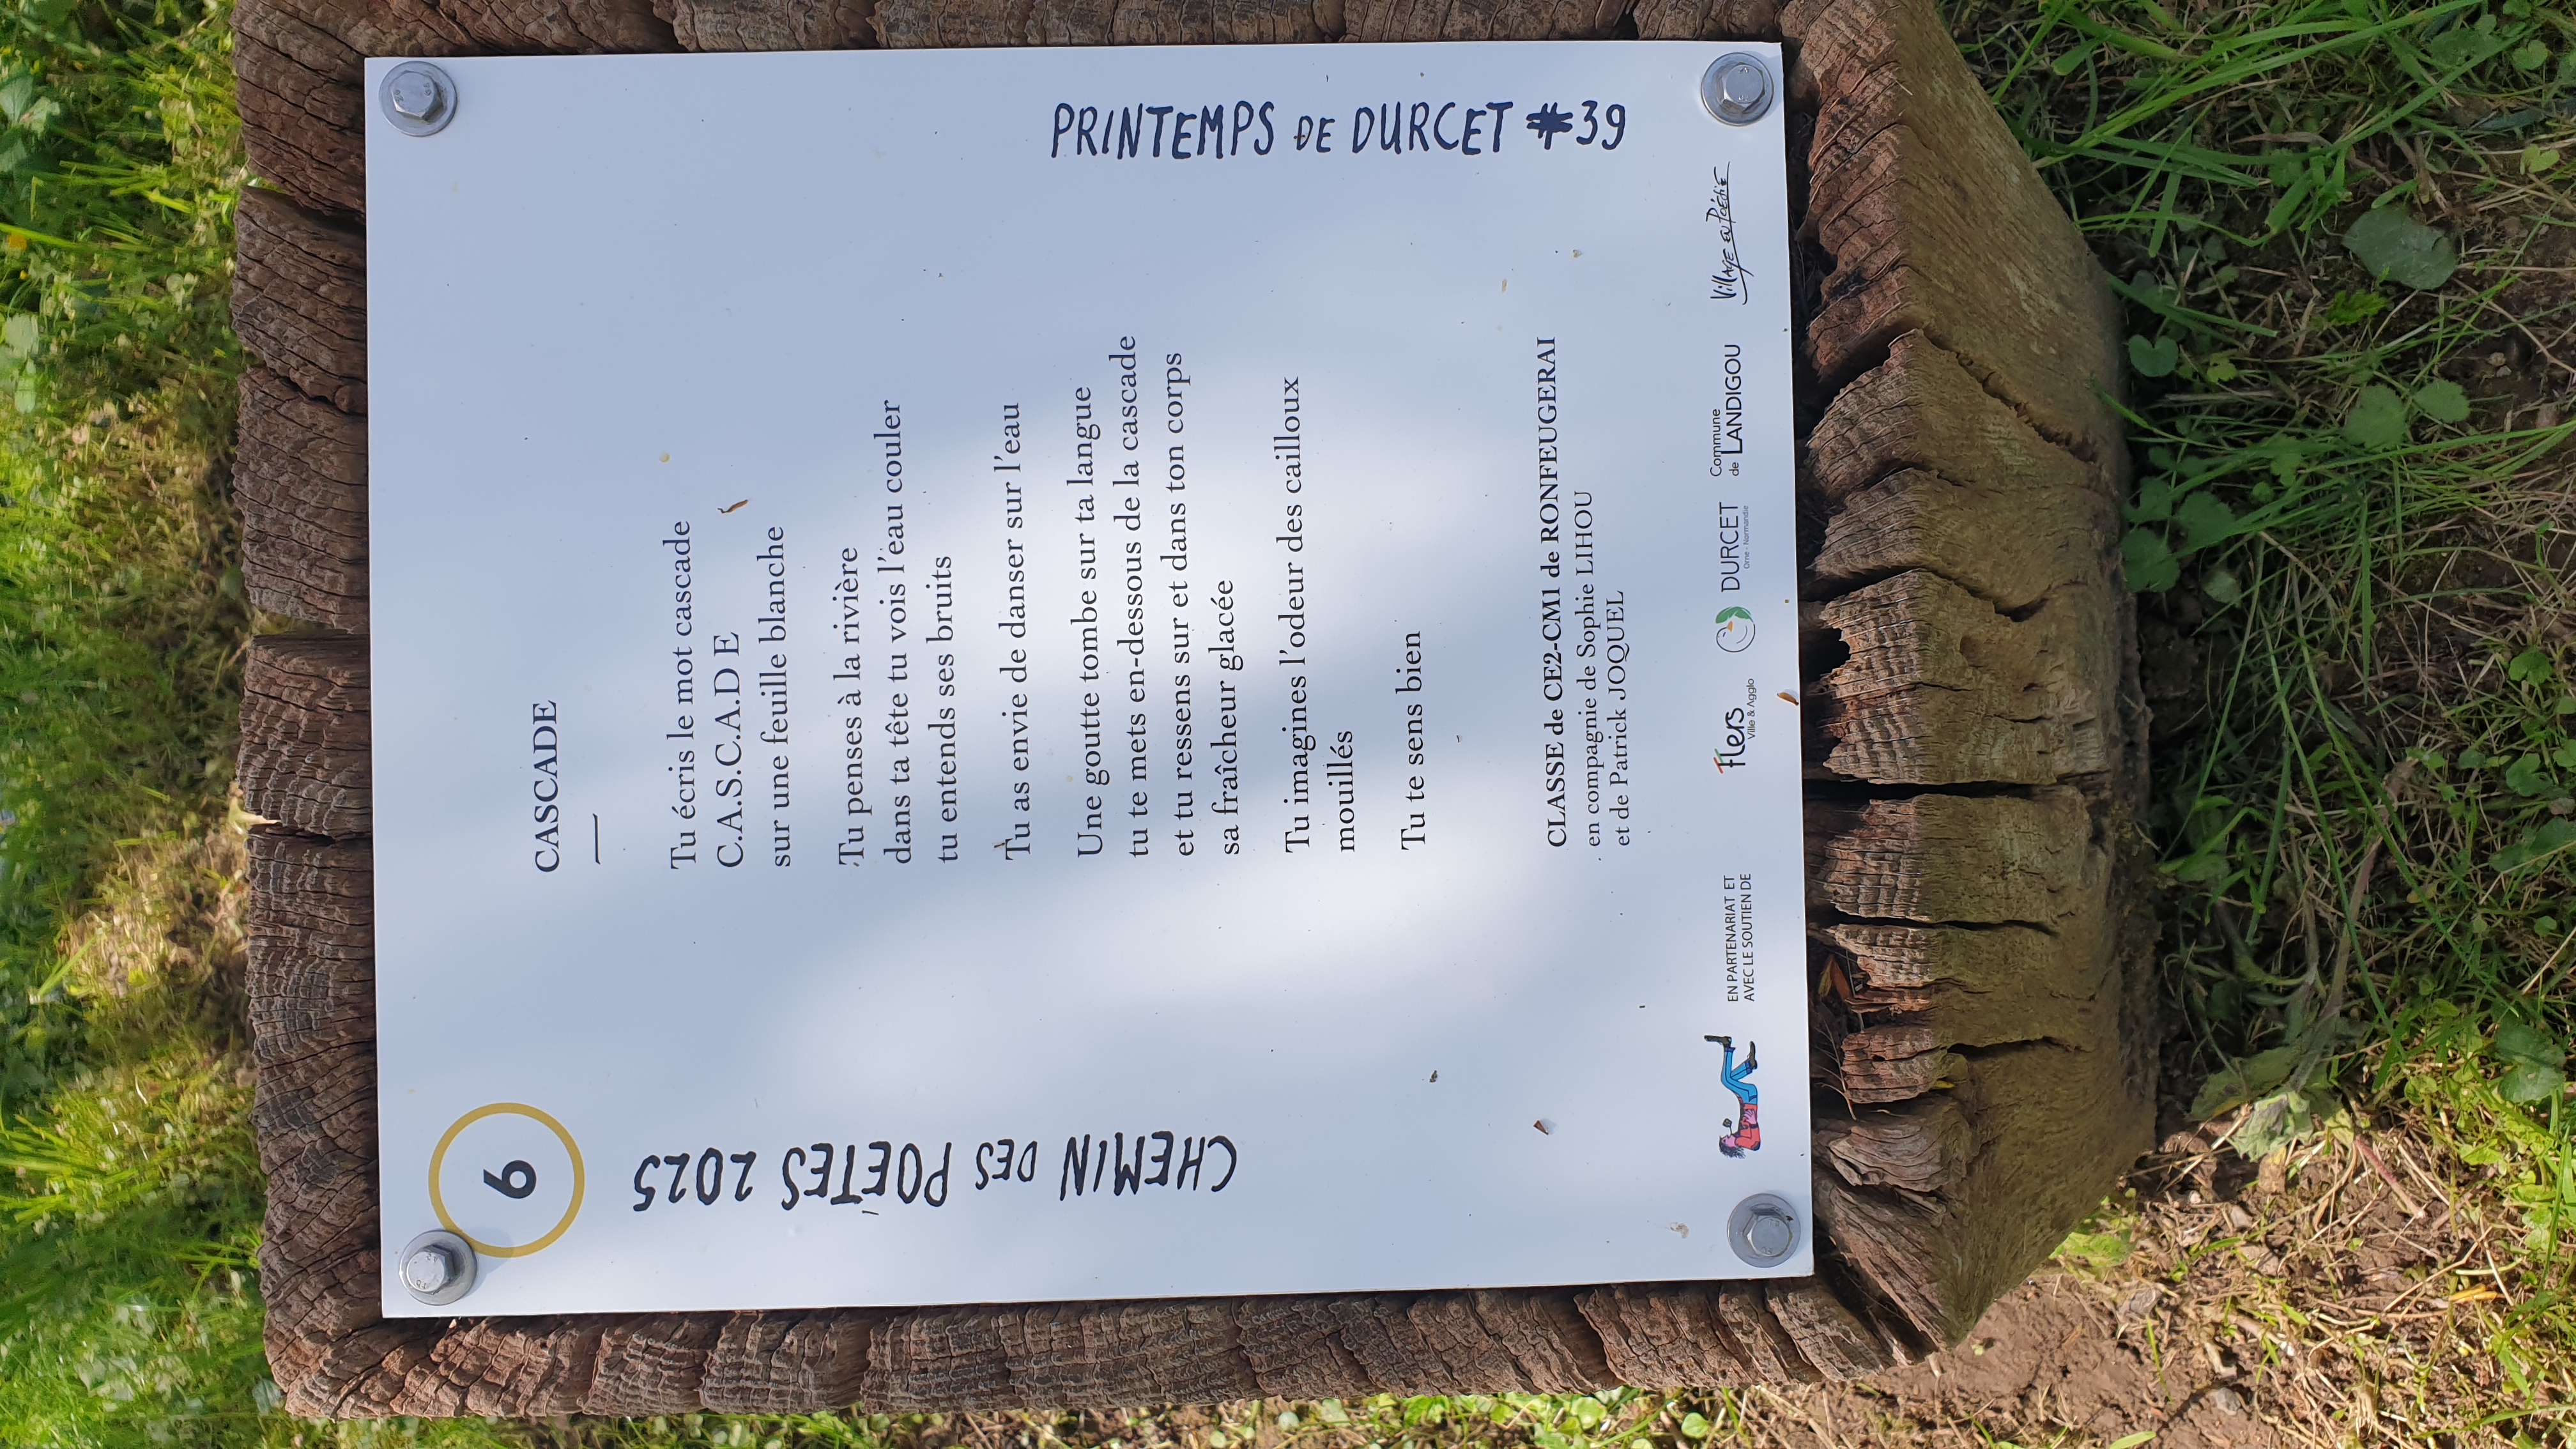 6
CHEMIN DES POÈTES 2025
CASCADE
Tu écris le mot cascade
C.A.S.C.A.D E
sur une feuille blanche
Tu penses à la rivière
dans ta tête tu vois l'eau couler
tu entends ses bruits
Tu as envie de danser sur l'eau
Une goutte tombe sur ta langue
tu te mets en-dessous de la cascade
et tu ressens sur et dans ton corps
sa fraîcheur glacée
Tu imagines l'odeur des cailloux
mouillés
Tu te sens bien
CLASSE de CE2-CM1 de RONFEUGERAI
en compagnie de Sophie LIHOU
et de Patrick JOQUEL
PRINTEMPS DE DURCET #39
EN PARTENARIAT ET
AVEC LE SOUTIEN DE
Flers
Ville & Agglo
DURCET
Orne - Normandie
Commune
de LANDIGOU
Village en Poésie